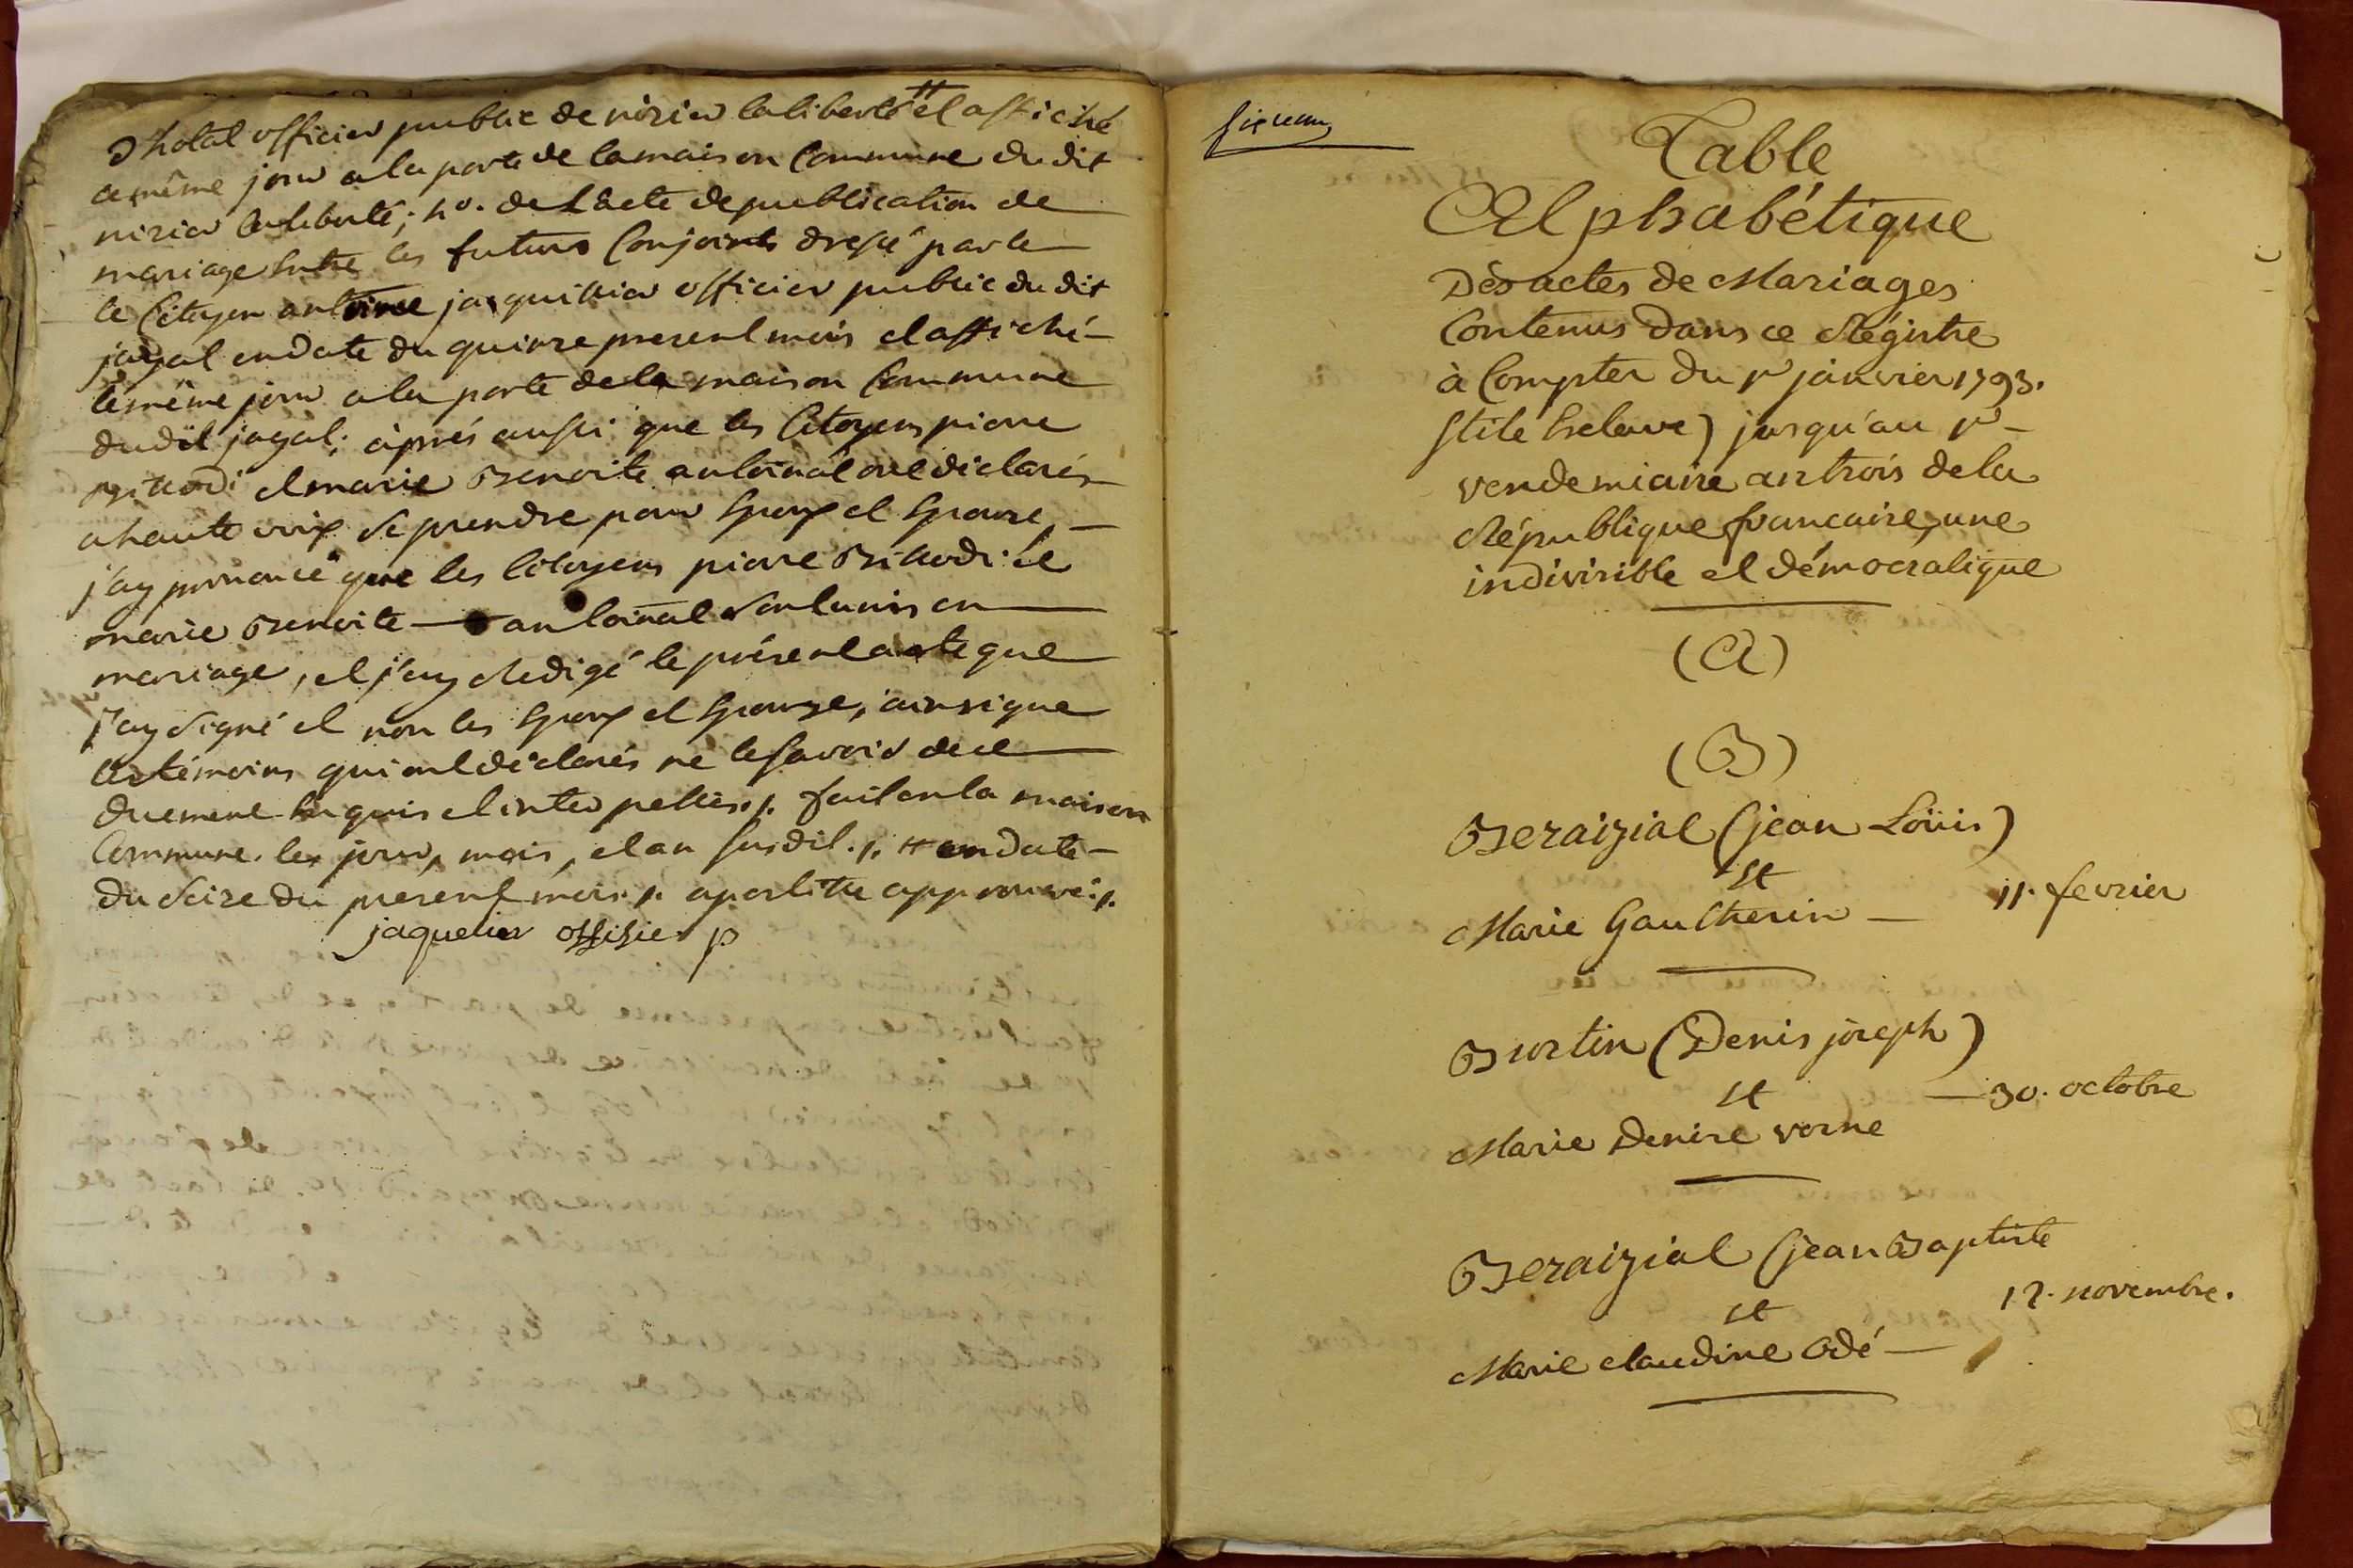 D'hotal officier public de nizier la liberté # et affiché
ce même jour a la porte de la maison Commune du dit
nizier la liberté; 4o. de l'acte de publication de
mariage Entre les futurs Conjoints dressé par le
le Citoyen antoine jacquillier officier public du dit
jagal en date du quinze present mois et affiché
le même jour a la porte de la maison Commune
du dit jagal; après aussi que les Citoyens pierre
et marie Benoite ont déclarés
a haute voix se prendre pour Epoux et Epouse,
j'ay prononcé que les Citoyens pierre et
marie Benoite sont unis en
mariage, et j'ay Redigé le présent acte que
j'ay signé et non les Epoux et Epouse, ainsi que
les témoins qui ont déclarés ne le savoir de ce
duement Enquis et interpellés ./. fait en la maison
Commune. les jour, mois, et an susdit ./. # en date
du seize du present mois ./. apostille approuvé ./.
jaquelier offisier p
Table
Alphabétique
Des actes de Mariages
Contenus dans ce Régistre
à Compter du 1er janvier 1793.
Stile Esclave) jusqu'au 1er
vendemiaire an trois de la
République francaise, une
indivisible et démocratique
(A)
(B)
Beraizial (jean Loüis)
Et
Marie Gautherin — 11. fevrier
Burtin (Denis joseph)
Et
— 30. octobre
Marie Denise verne
Beraizial (jean Baptiste
Et
12. novembre.
Marie claudine Odé —